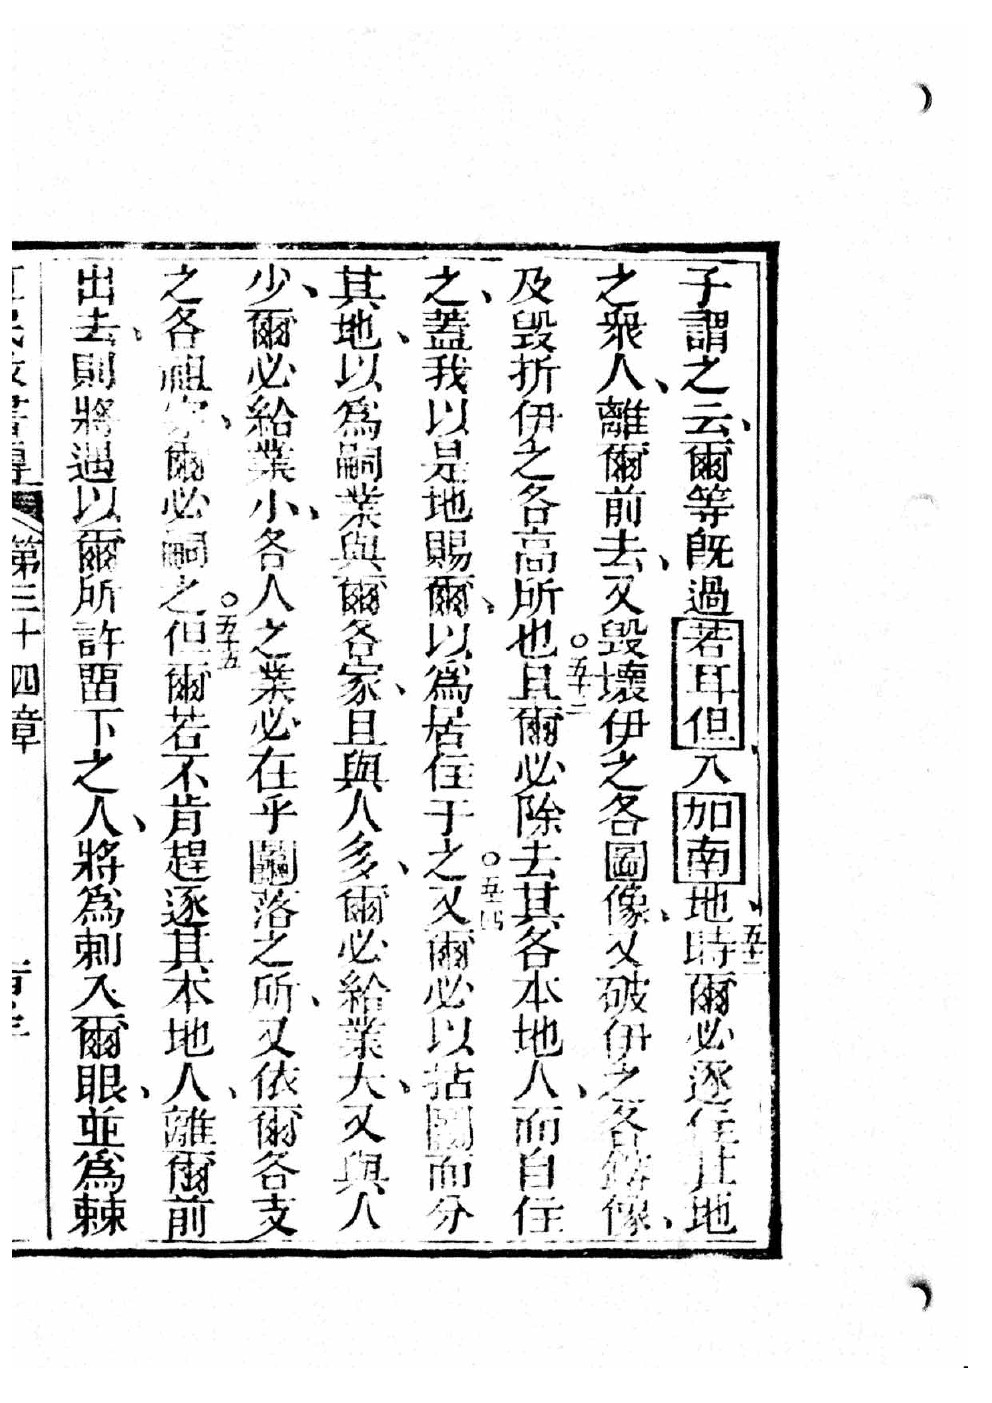 子謂之云、爾等旣過若耳但入加南地時、五十二爾必逐住其地
之衆人、離爾前去、又毀壞伊之各圖像、又破伊之各鑄像、
及毀折伊之各高所也○五十三且爾必除去其各本地人、而自住
之、蓋我以是地賜爾、以爲居住于之○五十四又爾必以拈鬮而分
其地、以爲嗣業與爾各家、且與人多、爾必給業大、又與人
少、爾必給業小、各人之業必在乎鬮落之所、又依爾各支
之各祖家、爾必嗣之○五十五但爾若不肯趕逐其本地人、離爾前
出去、則將遇以爾所許留下之人、將爲刺入爾眼、並爲棘
第三十四章